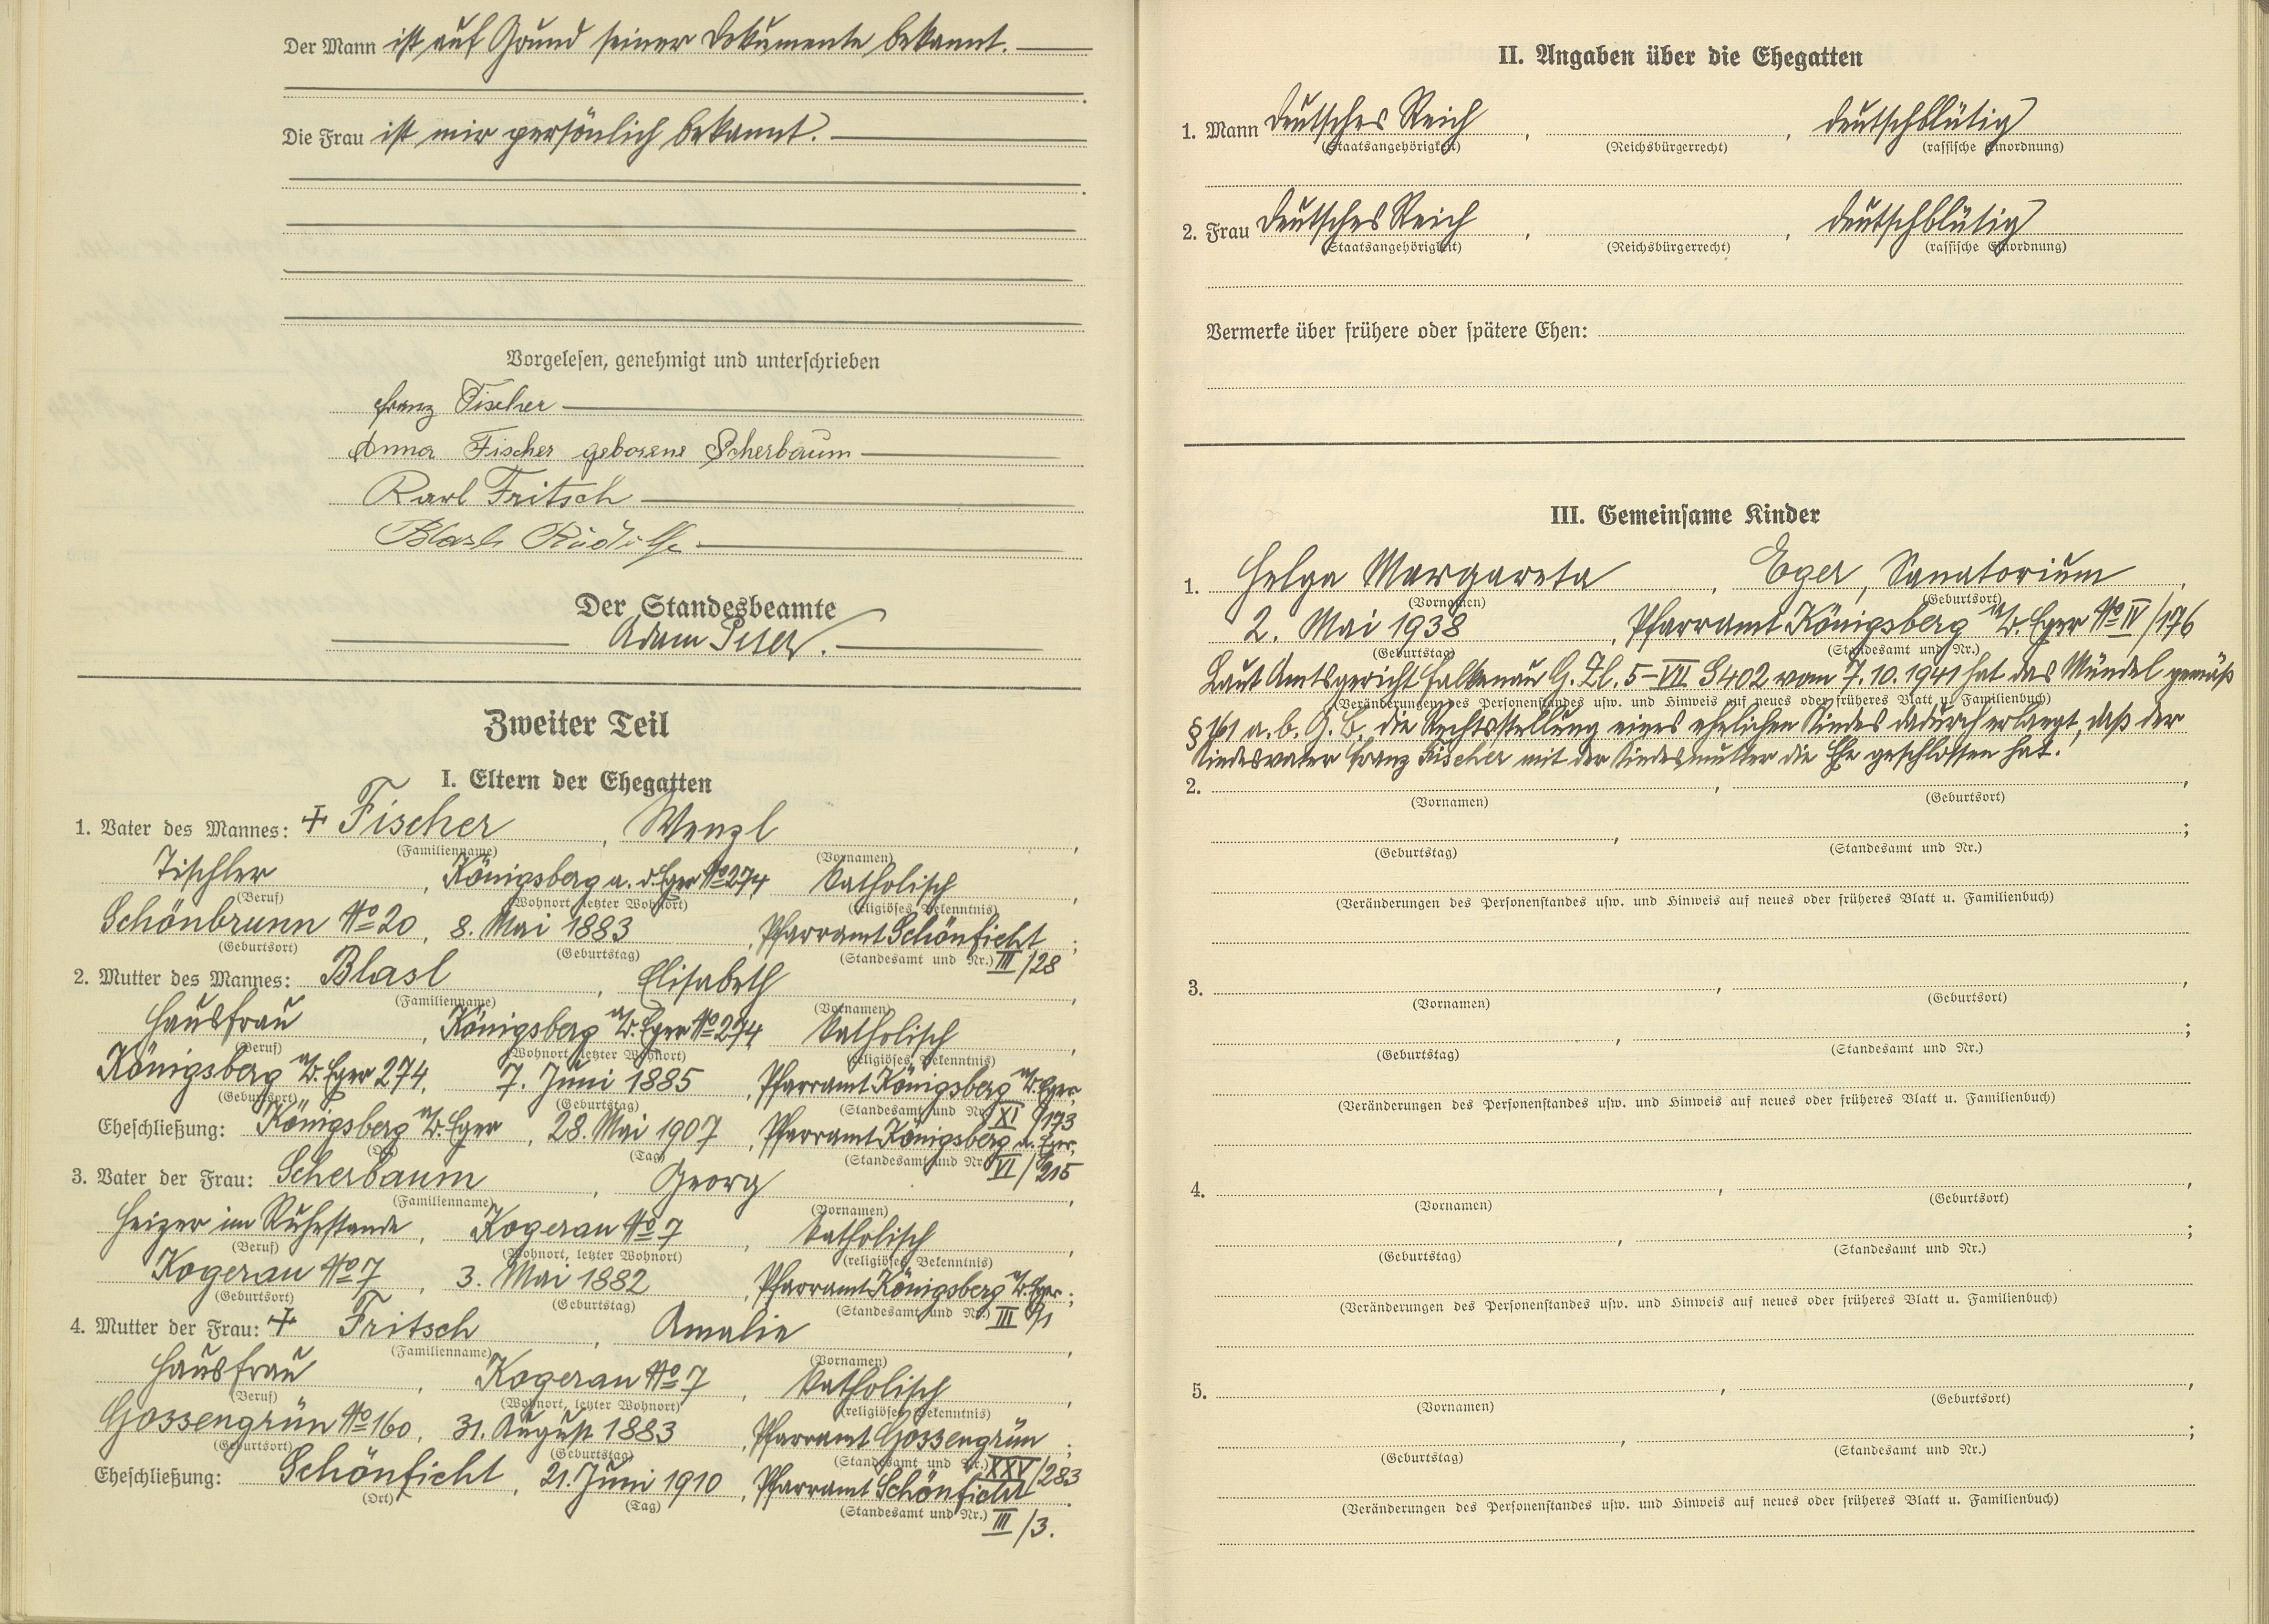 Der Mann ist auf Grund seiner Dokumente bekannt.
Die Frau ist mir persönlich bekannt.
Vorgelesen, genehmigt und unterschrieben
Franz Fischer
Anna Fischer geborene Scherbaum
Karl Fritsch
Blasl Rudolf
Der Standesbeamte
Adam
Zweiter Teil
I. Eltern der Ehegatten
1. Vater des Mannes: + Fischer, Wenzl,
(Familienname) (Vornamen)
Tischler, Königsberg a. d. Eger No 274, katholisch,
(Beruf) (Wohnort, letzter Wohnort) (religiöses Bekenntnis)
Schönbrunn No 20, 8. Mai 1883, Pfarramt Schönficht;
(Geburtsort) (Geburtstag) (Standesamt und Nr.) III/28
2. Mutter des Mannes: Blasl, Elisabeth,
(Familienname) (Vornamen)
Hausfrau, Königsberg a/d. Eger No 274, katholisch,
(Beruf) (Wohnort, letzter Wohnort) (religiöses Bekenntnis)
Königsberg a/d. Eger 274, 7. Juni 1885, Pfarramt Königsberg a/d. Eger,
(Geburtsort) (Geburtstag) (Standesamt und Nr.) XI/173
Eheschließung: Königsberg a/d. Eger, 28. Mai 1907, Pfarramt Königsberg a. Eger,
(Ort) (Tag) (Standesamt und Nr.) VI/215
3. Vater der Frau: Scherbaum, Georg,
(Familienname) (Vornamen)
Heizer im Ruhestande, Kogerau No 7, katholisch,
(Beruf) (Wohnort, letzter Wohnort) (religiöses Bekenntnis)
Kogerau No 7, 3. Mai 1882, Pfarramt Königsberg a/d. Eger;
(Geburtsort) (Geburtstag) (Standesamt und Nr.) III
4. Mutter der Frau: + Fritsch, Amalie,
(Familienname) (Vornamen)
Hausfrau, Kogerau No 7, katholisch,
(Beruf) (Wohnort, letzter Wohnort) (religiöses Bekenntnis)
Gossengrün No 160, 31. August 1883, Pfarramt Gossengrün;
(Geburtsort) (Geburtstag) (Standesamt und Nr.) XXV/283
Eheschließung: Schönficht, 21. Juni 1910, Pfarramt Schönficht.
(Ort) (Tag) (Standesamt und Nr.) III/3.
II. Angaben über die Ehegatten
1. Mann Deutsches Reich, , deutschblütig
(Staatsangehörigkeit) (Reichsbürgerrecht) (rassische Einordnung)
2. Frau Deutsches Reich, , deutschblütig
(Staatsangehörigkeit) (Reichsbürgerrecht) (rassische Einordnung)
Vermerke über frühere oder spätere Ehen:
III. Gemeinsame Kinder
1. Helga Margareta, Eger, Sanatorium,
(Vornamen) (Geburtsort)
2. Mai 1938, Pfarramt Königsberg a/d. Eger No IV/176
(Geburtstag) (Standesamt und Nr.)
Laut Amtsgericht Falkenau G. Zl. 5-VII S 402 vom 7.10.1941 hat das Mündel gemäß
(Veränderungen des Personenstandes usw. und Hinweis auf neues oder früheres Blatt u. Familienbuch)
§ 161 a. b. G. B. die Rechtsstellung eines ehelichen Kindes dadurch erlangt, daß der
Kindesvater Franz Fischer mit der Kindesmutter die Ehe geschlossen hat.
2. , ,
(Vornamen) (Geburtsort)
, ;
(Geburtstag) (Standesamt und Nr.)
(Veränderungen des Personenstandes usw. und Hinweis auf neues oder früheres Blatt u. Familienbuch)
3. , ,
(Vornamen) (Geburtsort)
, ;
(Geburtstag) (Standesamt und Nr.)
(Veränderungen des Personenstandes usw. und Hinweis auf neues oder früheres Blatt u. Familienbuch)
4. , ,
(Vornamen) (Geburtsort)
, ;
(Geburtstag) (Standesamt und Nr.)
(Veränderungen des Personenstandes usw. und Hinweis auf neues oder früheres Blatt u. Familienbuch)
5. , ,
(Vornamen) (Geburtsort)
, ;
(Geburtstag) (Standesamt und Nr.)
(Veränderungen des Personenstandes usw. und Hinweis auf neues oder früheres Blatt u. Familienbuch)